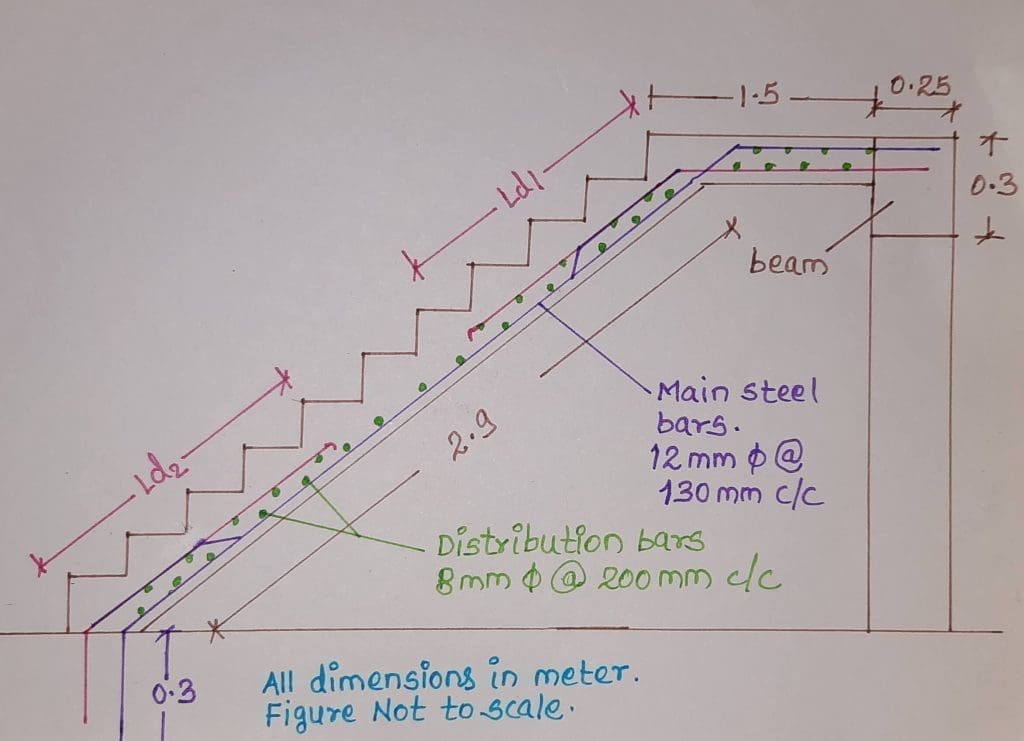 1.5
0.25
Ld1
0.3
beam
Main steel
bars.
12 mm ϕ @
130 mm c/c
2.9
Ld2
Distribution bars
8mm ϕ @ 200 mm c/c
0.3
All dimensions in meter.
Figure Not to scale.